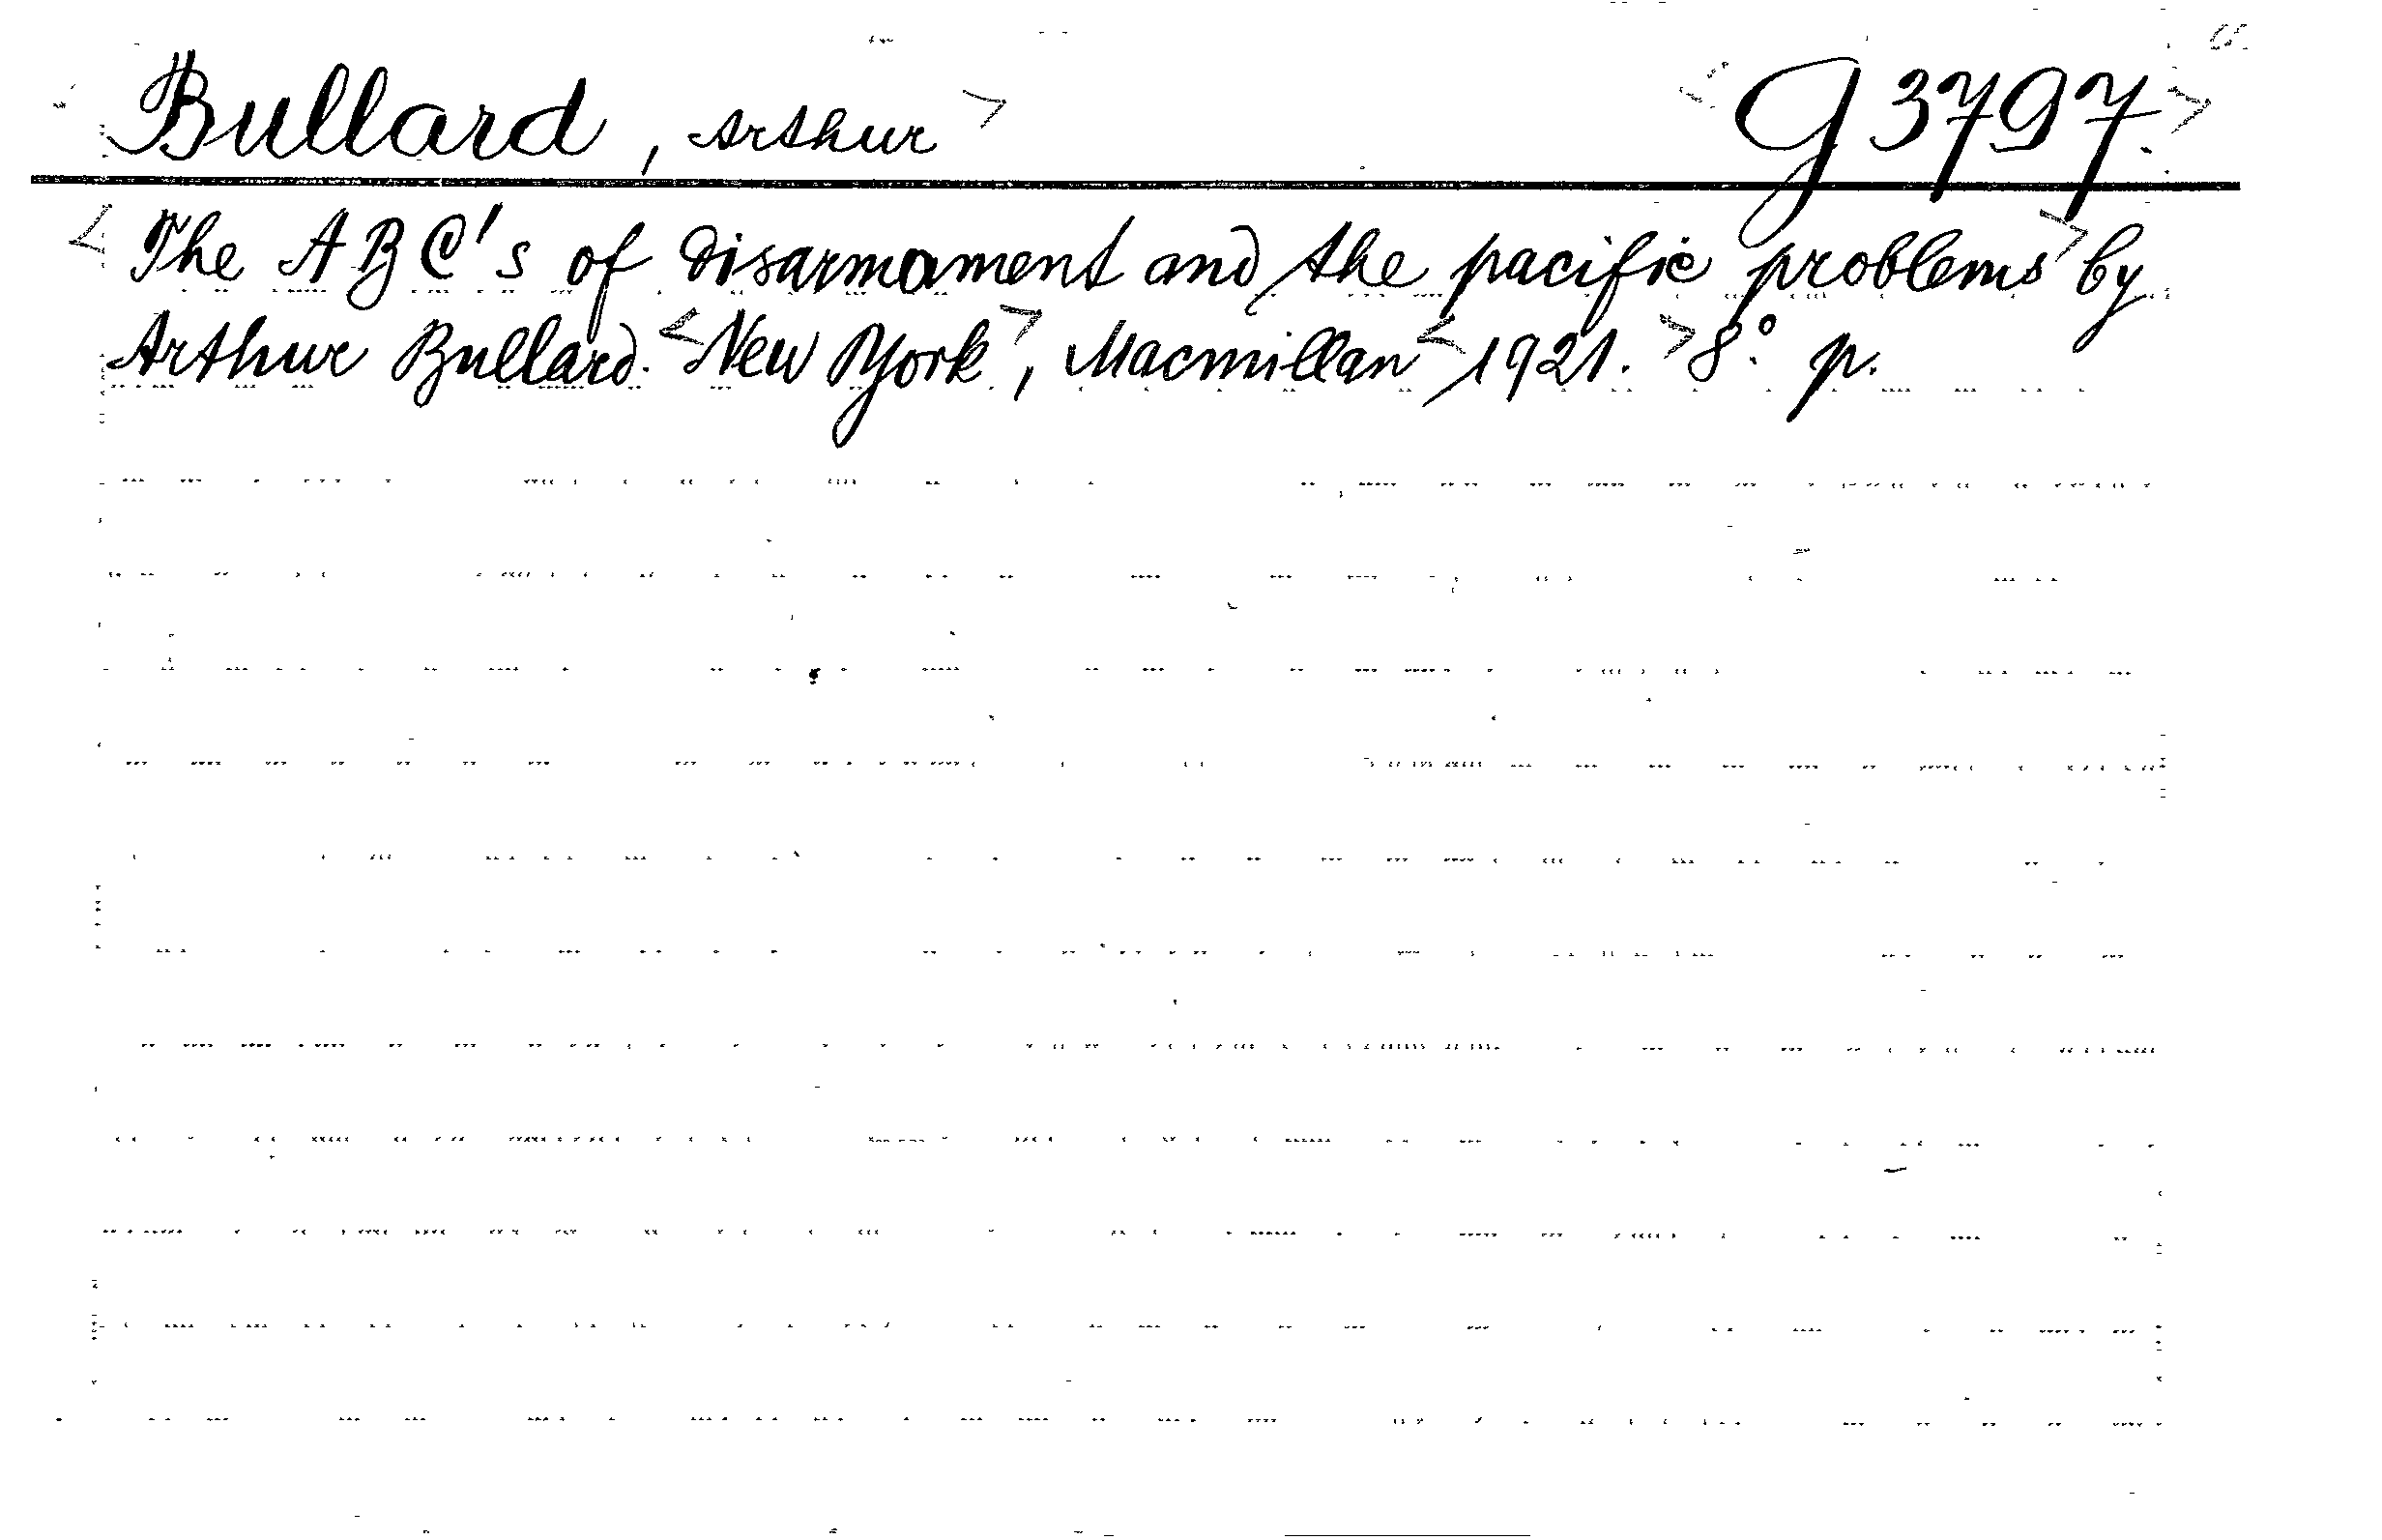 Bullard, Arthur> <G3797.>
<The ABC's of disarmament and the pacific problems> by
Arthur Bullard. <New York>, Macmillan <1921.> 8°. p.